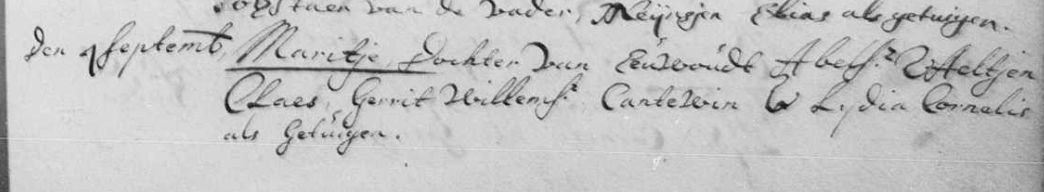 van de Vader, Meijnsjen Elias als getuijgen.
den 4 Septemb, Maritje, Dochter van Eeuwoudt Abelsz. Aeltjen
Claes, Gerrit Willemsz. Cantewin & Lydia Cornelis
als Getuigen.